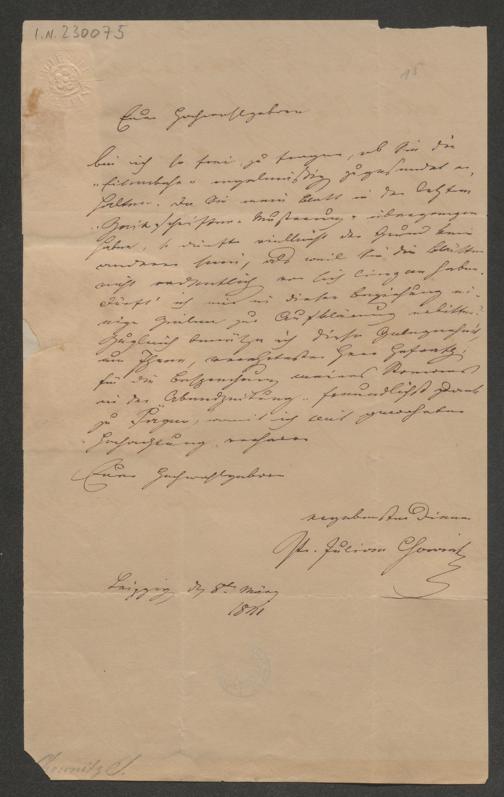 I.N. 230075
15
Euer Hochwohlgeboren
bin ich so frei zu fragen, ob Sie die
"Eisenbahn" regelmäßig zugesendet er-
halten. Da Sie mein Blatt in der letzten
"Zeitschriften-Musterung" übergangen
haben, so dürfte vielleicht der Grund kein
anderer sein, als weil Sie die Blätter
nicht ordentlich vor sich liegen haben.
Dürft' ich mir in dieser Beziehung ei-
nige Zeilen zur Aufklärung erbitten?
Zugleich benütze ich diese Gelegenheit,
um Ihnen, verehrtester Herr Hofrath,
für die Besprechung meines Romanes
in der "Abendzeitung" freundlichst Dank
zu sagen, womit ich mit gewohnter
Hochachtung verharre
Euer Hochwohlgeboren
ergebenster Diener
Dr. Julian Chownitz
Leipzig, den 8ten März
1841
Chownitz J.